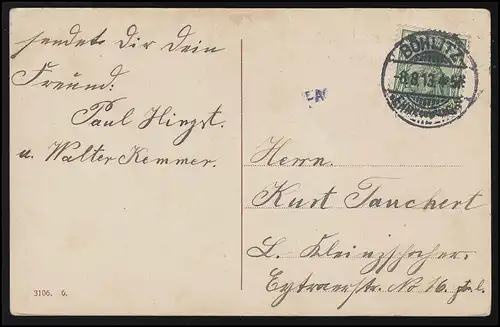 sendet Dir Dein
Freund:
Paul Hingst.
u. Walter Kemmer.
3106. 6.
GÖRLITZ
-8.8.13.4-5N
Herrn
Kurt Tauchert
L. Kleinzschocher.
No 16. ptr. l.